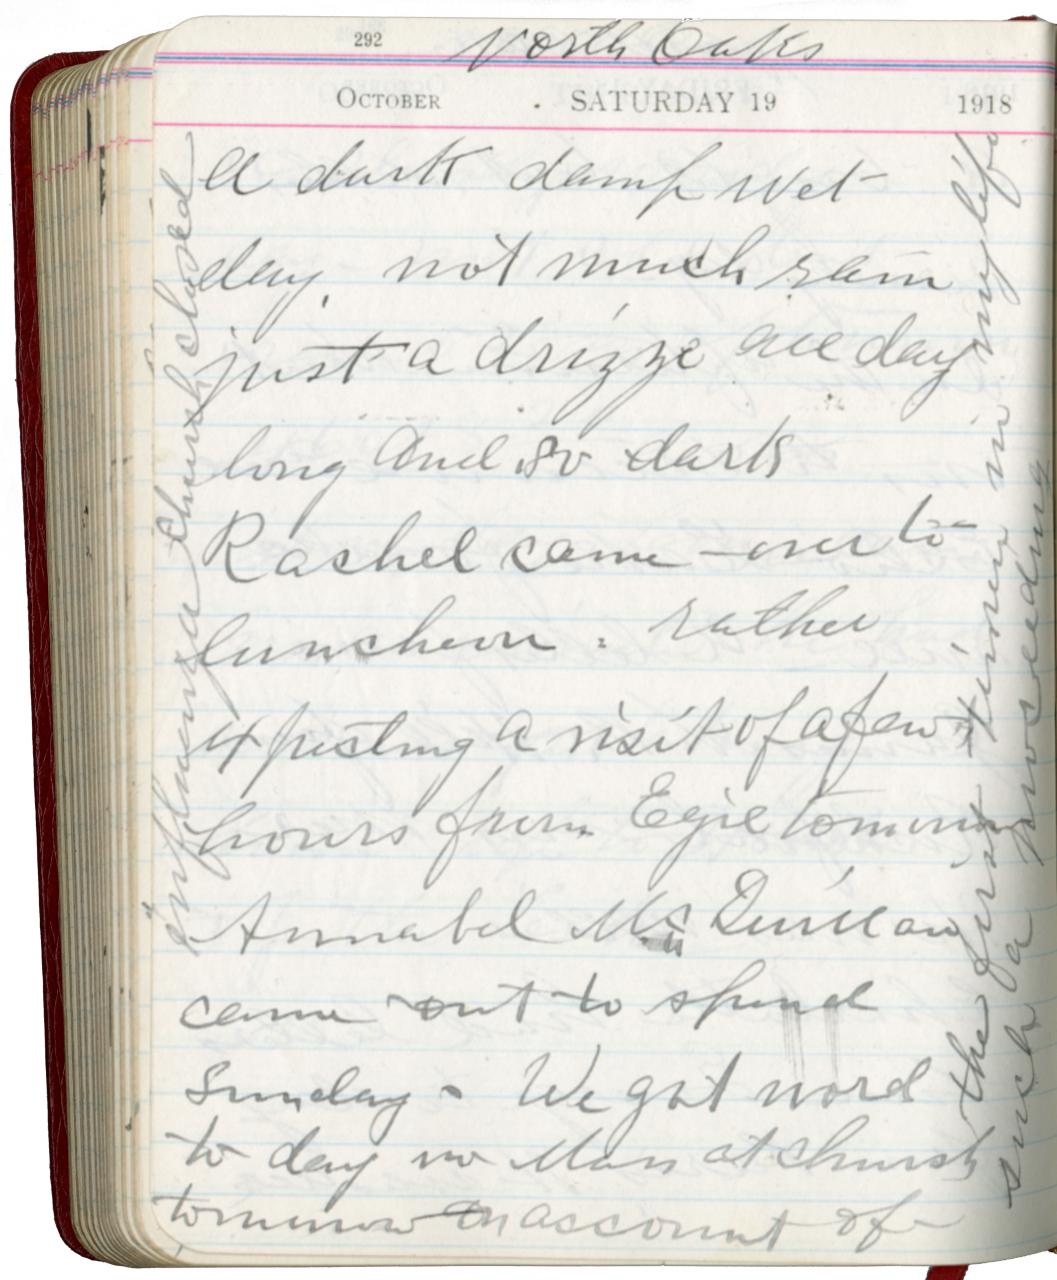 292
North Oaks
October . SATURDAY 19 1918
A dark damp wet
day, not much rain
just a drizze all day
long and so dark
Rachel came over to
luncheon. rather
expecting a visit of a few
hours from Egie tomorrow
Annabel Mc Quillan
came out to spend
Sunday - We got word
to day no Mass at church
tomorrow on account of
influenza church closed
the first time in my life
such a proceeding